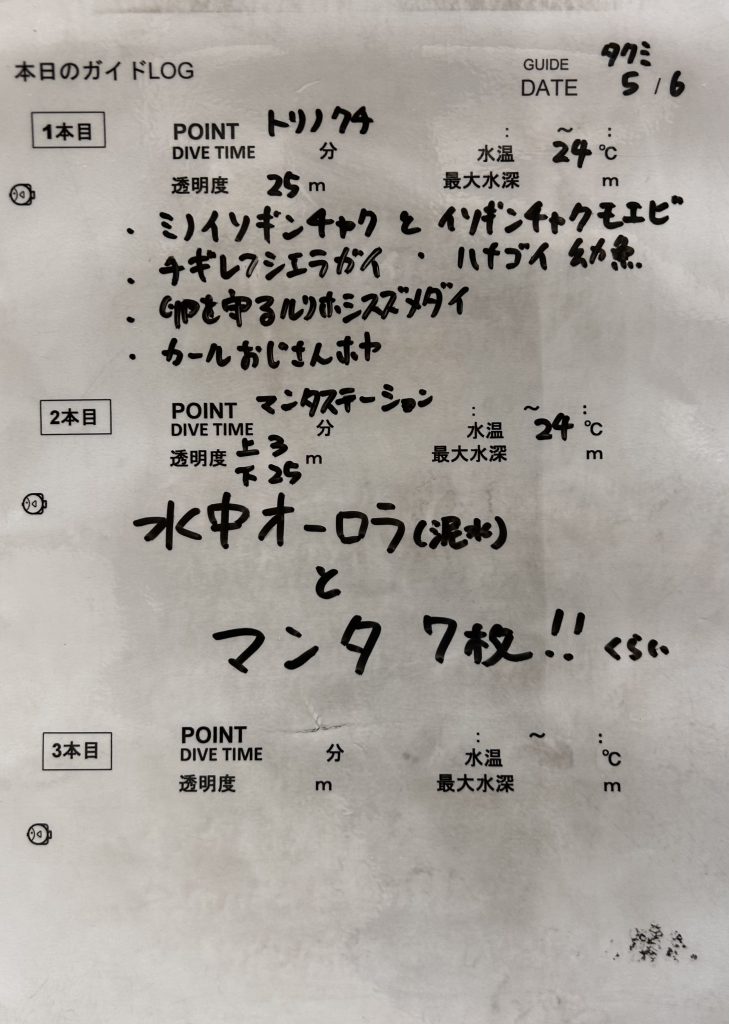 本日のガイドLOG
GUIDE タクミ
DATE 5 / 6
1本目
POINT トリノクチ : ～ :
DIVE TIME 分 水温 24 ℃
透明度 25 m 最大水深 m
・ミノイソギンチャクとイソギンチャクモエビ
・チギレフシエラガイ ・ハナゴイ幼魚
・卵を守るルリホシスズメダイ
・カールおじさんホヤ
2本目
POINT マンタステーション : ～ :
DIVE TIME 分 水温 24 ℃
透明度 上 3 下 25 m 最大水深 m
水中オーロラ(泥水)
と
マンタ 7枚!! くらい
3本目
POINT : ～ :
DIVE TIME 分 水温 ℃
透明度 m 最大水深 m